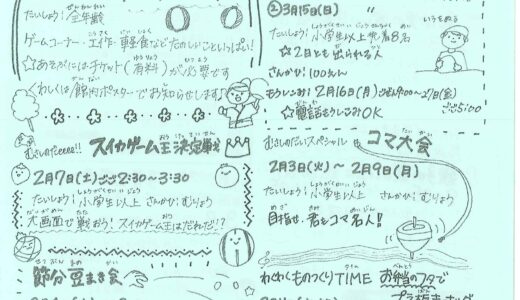 たいしょう：全年齢
ゲームコーナー・工作・軽食などたのしいこといっぱい！
☆あそぶにはチケット（有料）が必要です
くわしくは館内ポスターでお知らせします♪
むさしのだeeee!!
スイカゲーム王決定戦
2月7日（土）ごご2:30〜3:30
たいしょう：小学生以上 さんかひ：むりょう
大画面で戦おう！スイカゲーム王はだれだ!?
節分 豆まき会
②3月15日（日）
いろをぬる
たいしょう：小学生以上
☆2日とも出られる人
さんかひ：100えん
もうしこみ：2月16日（月）
☆電話もうしこみOK
ごご5:00
むさしのだいスペシャル
コマ大会
2月3日（火）〜2月9日（月）
たいしょう：小学生以上 さんかひ：むりょう
目指せ、君もコマ名人！
わくわくものつくりTIME お弁当のフタで